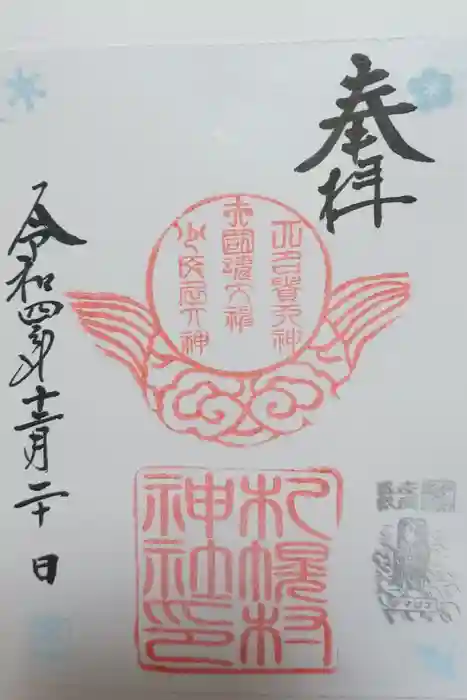 奉拝
大己貴大神
大國魂大神
少彦名大神
札幌村
神社印
令和四年十二月二十日